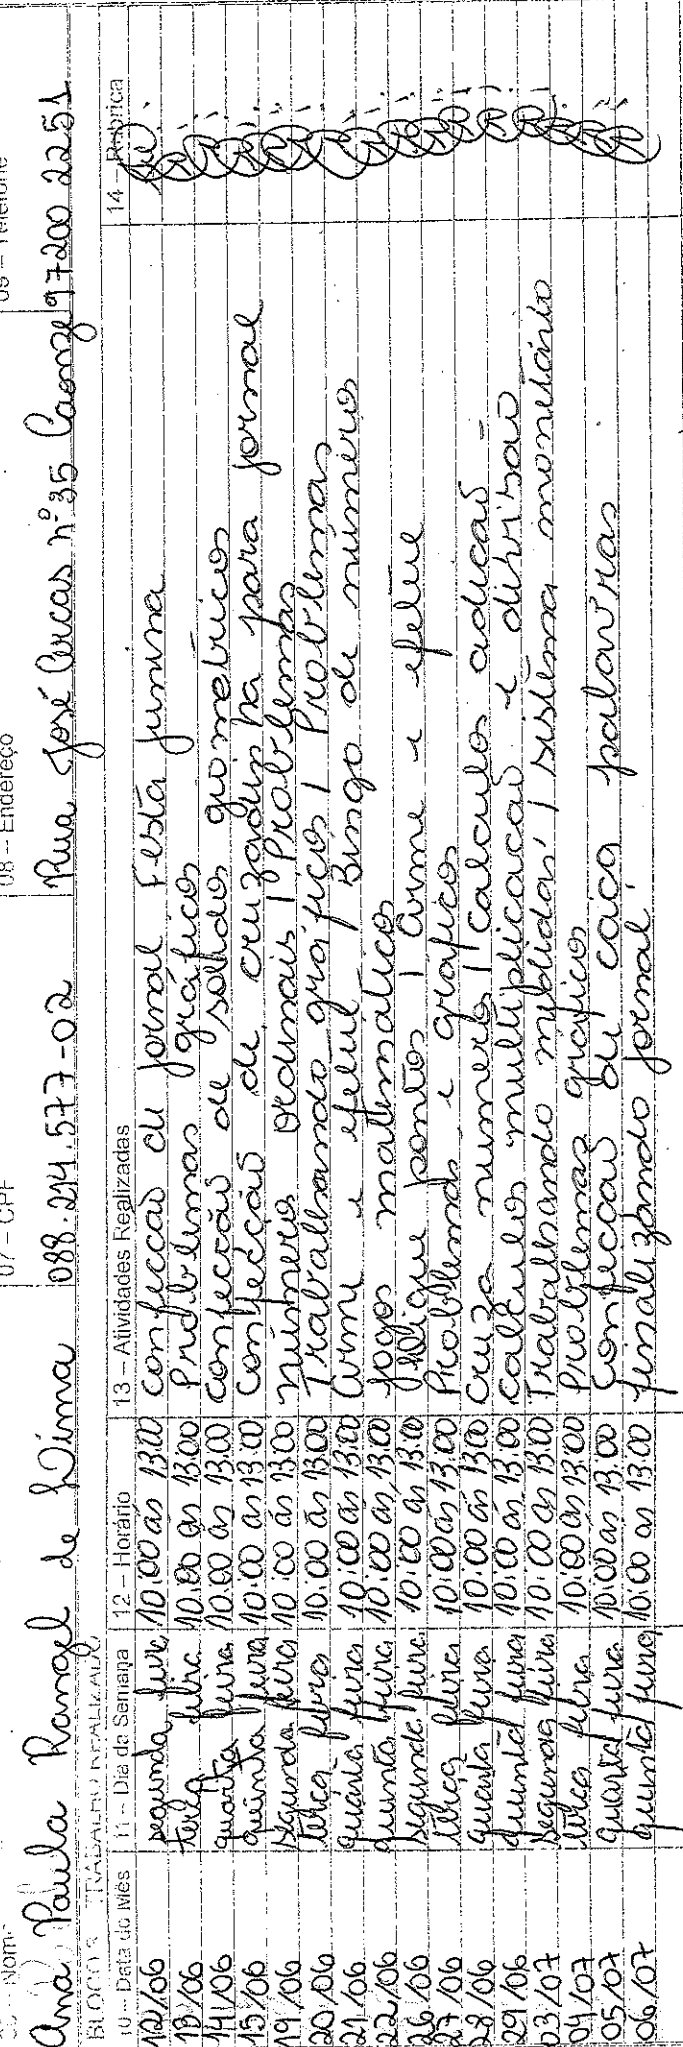 Nome 07 - CPF 08 - Endereço 09 - Telefone
Ana Paula Rangel de Lima 088.214.577-02 Rua José Carcas nº 35 97200 2251
10 - Data do Mês 11 - Dia da Semana 12 - Horário 13 - Atividades Realizadas 14 - Rubrica
12/06 segunda feira 10:00 ás 13:00 confeccão de jornal festa junina
13/06 terça feira 10:00 ás 13:00 Problemas gráficos
14/06 quarta feira 10:00 ás 13:00 confecção de solidos giometricos
15/06 quinta feira 10:00 ás 13:00 Confecção de cruzadinha para jornal
19/06 segunda feira 10:00 ás 13:00 números ordinais / Problemas
20/06 terça feira 10:00 ás 13:00 Trabalhando gráficos / Problemas
21/06 quarta feira 10:00 ás 13:00 Arme e efetue / Bingo de número
22/06 quinta feira 10:00 ás 13:00 Jogos matemático
26/06 segunda feira 10:00 ás 13:00 Ligue pontos / Arme e efetue
27/06 terça feira 10:00 ás 13:00 Problemas e gráficos
28/06 quarta feira 10:00 ás 13:00 Cruza numero / calculos adicão
29/06 quinta feira 10:00 ás 13:00 Calculos multiplicacão e divisão
03/07 segunda feira 10:00 ás 13:00 Trabalhando medidas / sistema monetário
04/07 terça feira 10:00 ás 13:00 Problemas gráficos
05/07 quarta feira 10:00 ás 13:00 Confeccão de caça palavras
06/07 quinta feira 10:00 ás 13:00 finalizando jornal.